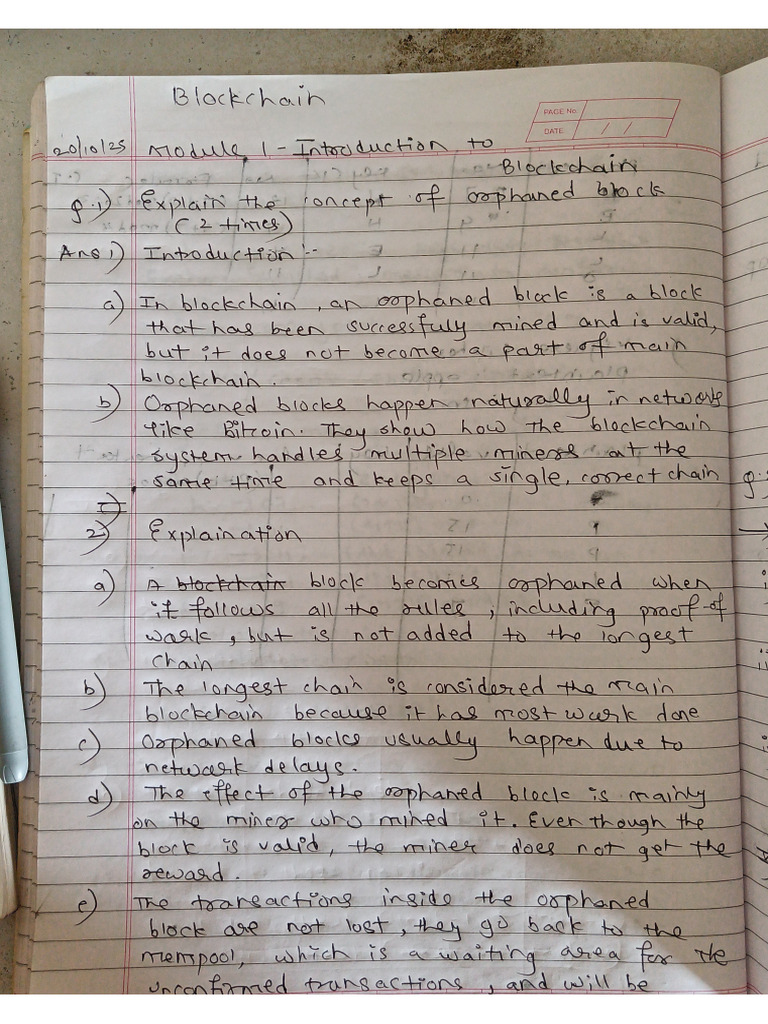 Blockchain
PAGE No.
DATE / /
20/10/25 Module 1 - Introduction to
Blockchain
Q.1) Explain the concept of orphaned block
(2 times)
Ans 1) Introduction :-
a) In blockchain, an orphaned block is a block
that has been successfuly mined and is valid,
but it does not become a part of main
blockchain.
b) Orphaned blocks happen naturally in network
like Bitcoin. They show how the blockchain
system handles multiple miners at the
same time and keeps a single, correct chain
I)
2) Explaination
a) A blockchain block becomes orphaned when
it follows all the rules, including proof-of
work, but is not added to the longest
chain
b) The longest chain is considered the main
blockchain because it has most work done
c) Orphaned blocks usually happen due to
network delays.
d) The effect of the orphaned block is mainly
on the miner who mined it. Even though the
block is valid, the miner does not get the
reward.
e) The transactions inside the orphaned
block are not lost, they go back to the
mempool, which is a waiting area for the
unconfirmed transactions, and will be